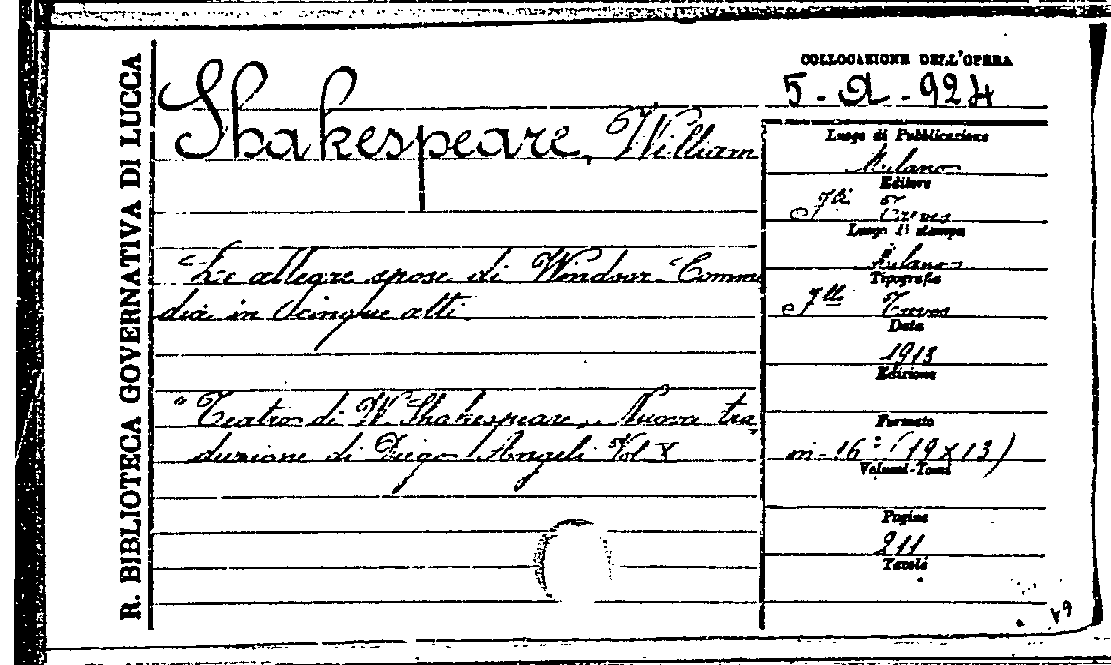 R. BIBLIOTECA GOVERNATIVA DI LUCCA
COLLOCAZIONE DELL'OPERA
5-a-924
Shakespeare, William
Luogo di Pubblicazione
Milano
Editore
F.lli Treves
Luogo di stampa
Milano
Tipografia
F.lli Treves
Data
1913
Edizione
Formato
in-16° (19x13)
Volumi-Tomi
Pagine
211
Tavole
Le allegre spose di Windsor-Comme
dia in cinque atti.
"Teatro di W. Shakespeare. Nuova tra
duzione di Diego Angeli Vol X